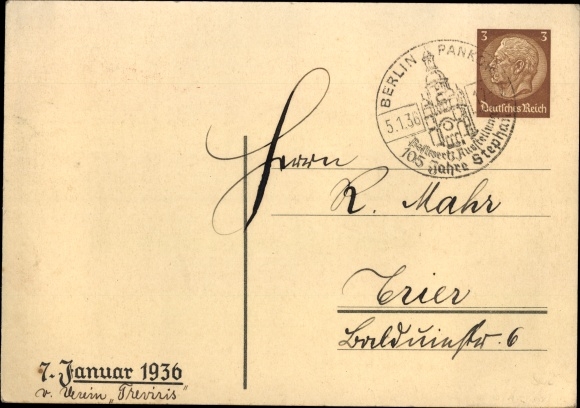 3 3
Deutsches Reich
BERLIN PANKO
5.1.36
Postwertz. Ausstellung
105 Jahre Stephan
Herrn
R. Mahr
Trier
Balduinstr. 6
7. Januar 1936
v. Verein „Treviris"